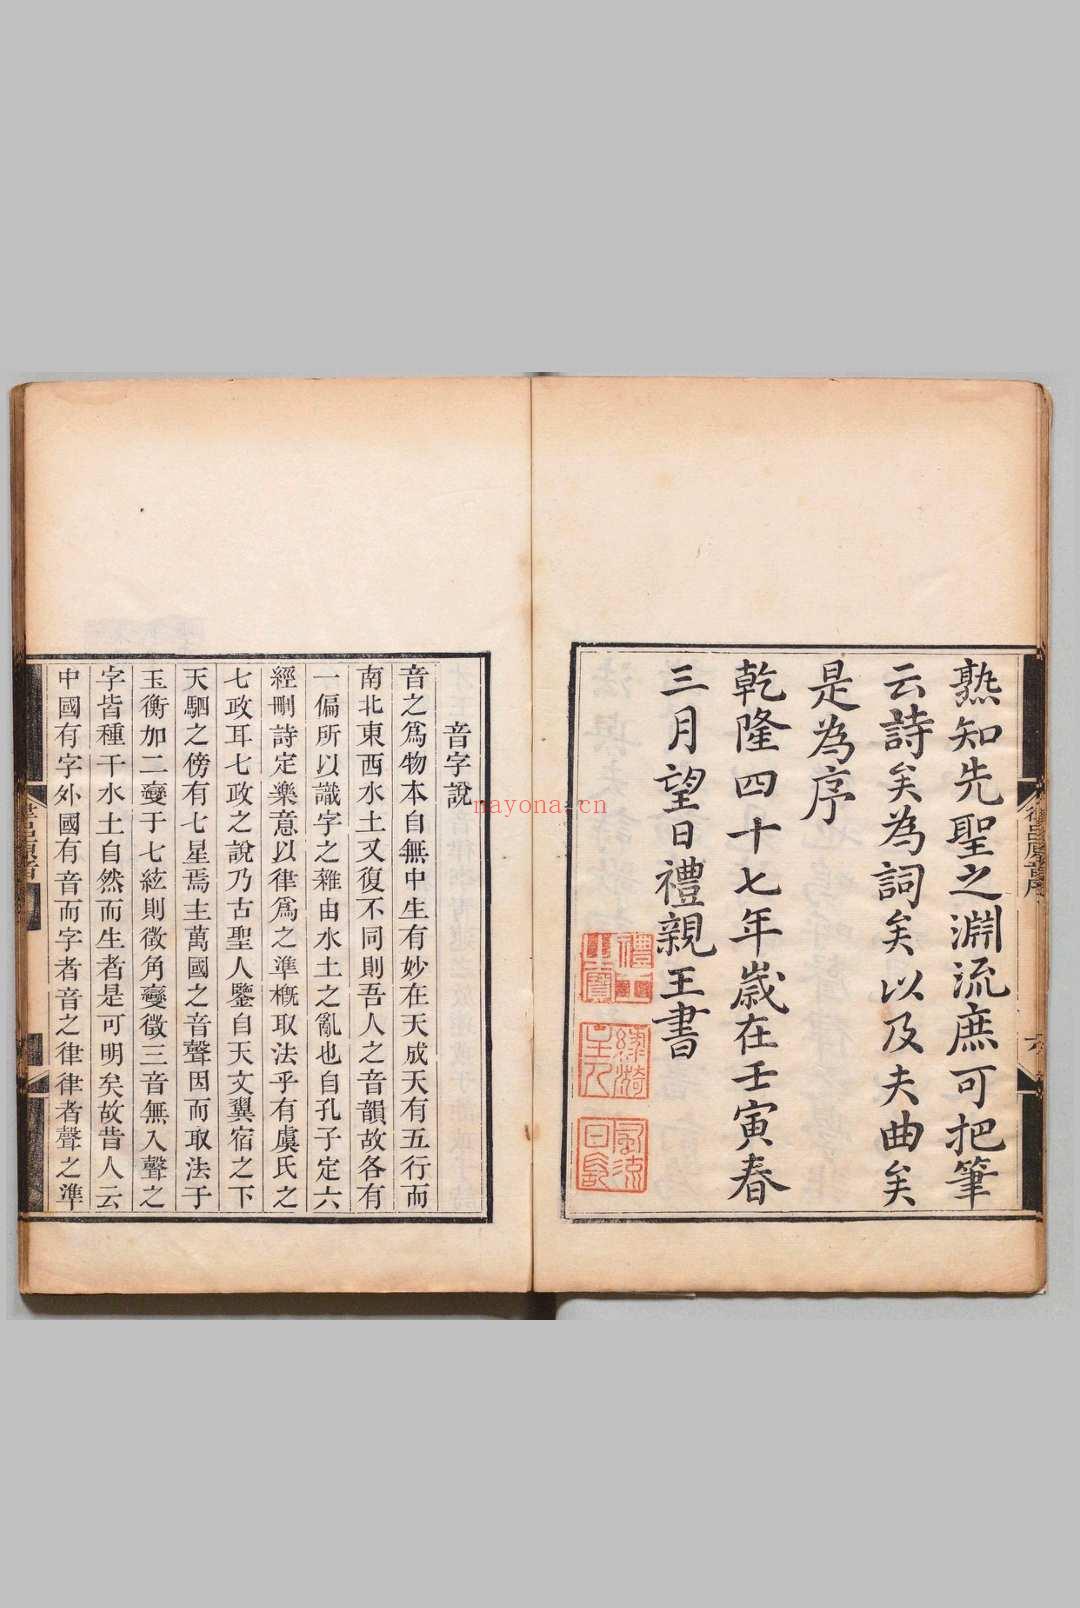 熟知先聖之淵流庶可把筆
云詩矣為詞矣以及夫曲矣
是為序
乾隆四十七年歲在壬寅春
三月望日禮親王書
音字說
音之爲物本自無中生有妙在天成天有五行而
南北東西水土又復不同則吾人之音韻故各有
一偏所以識字之雜由水土之亂也自孔子定六
經刪詩定樂意以律爲之準概取法乎有虞氏之
七政耳七政之說乃古聖人鑒自天文翼宿之下
天駟之傍有七星焉主萬國之音聲因而取法于
玉衡加二變于七絃則徵角變徵三音無入聲之
字皆種于水土自然而生者是可明矣故昔人云
中國有字外國有音而字者音之律律者聲之準
nayona.cn